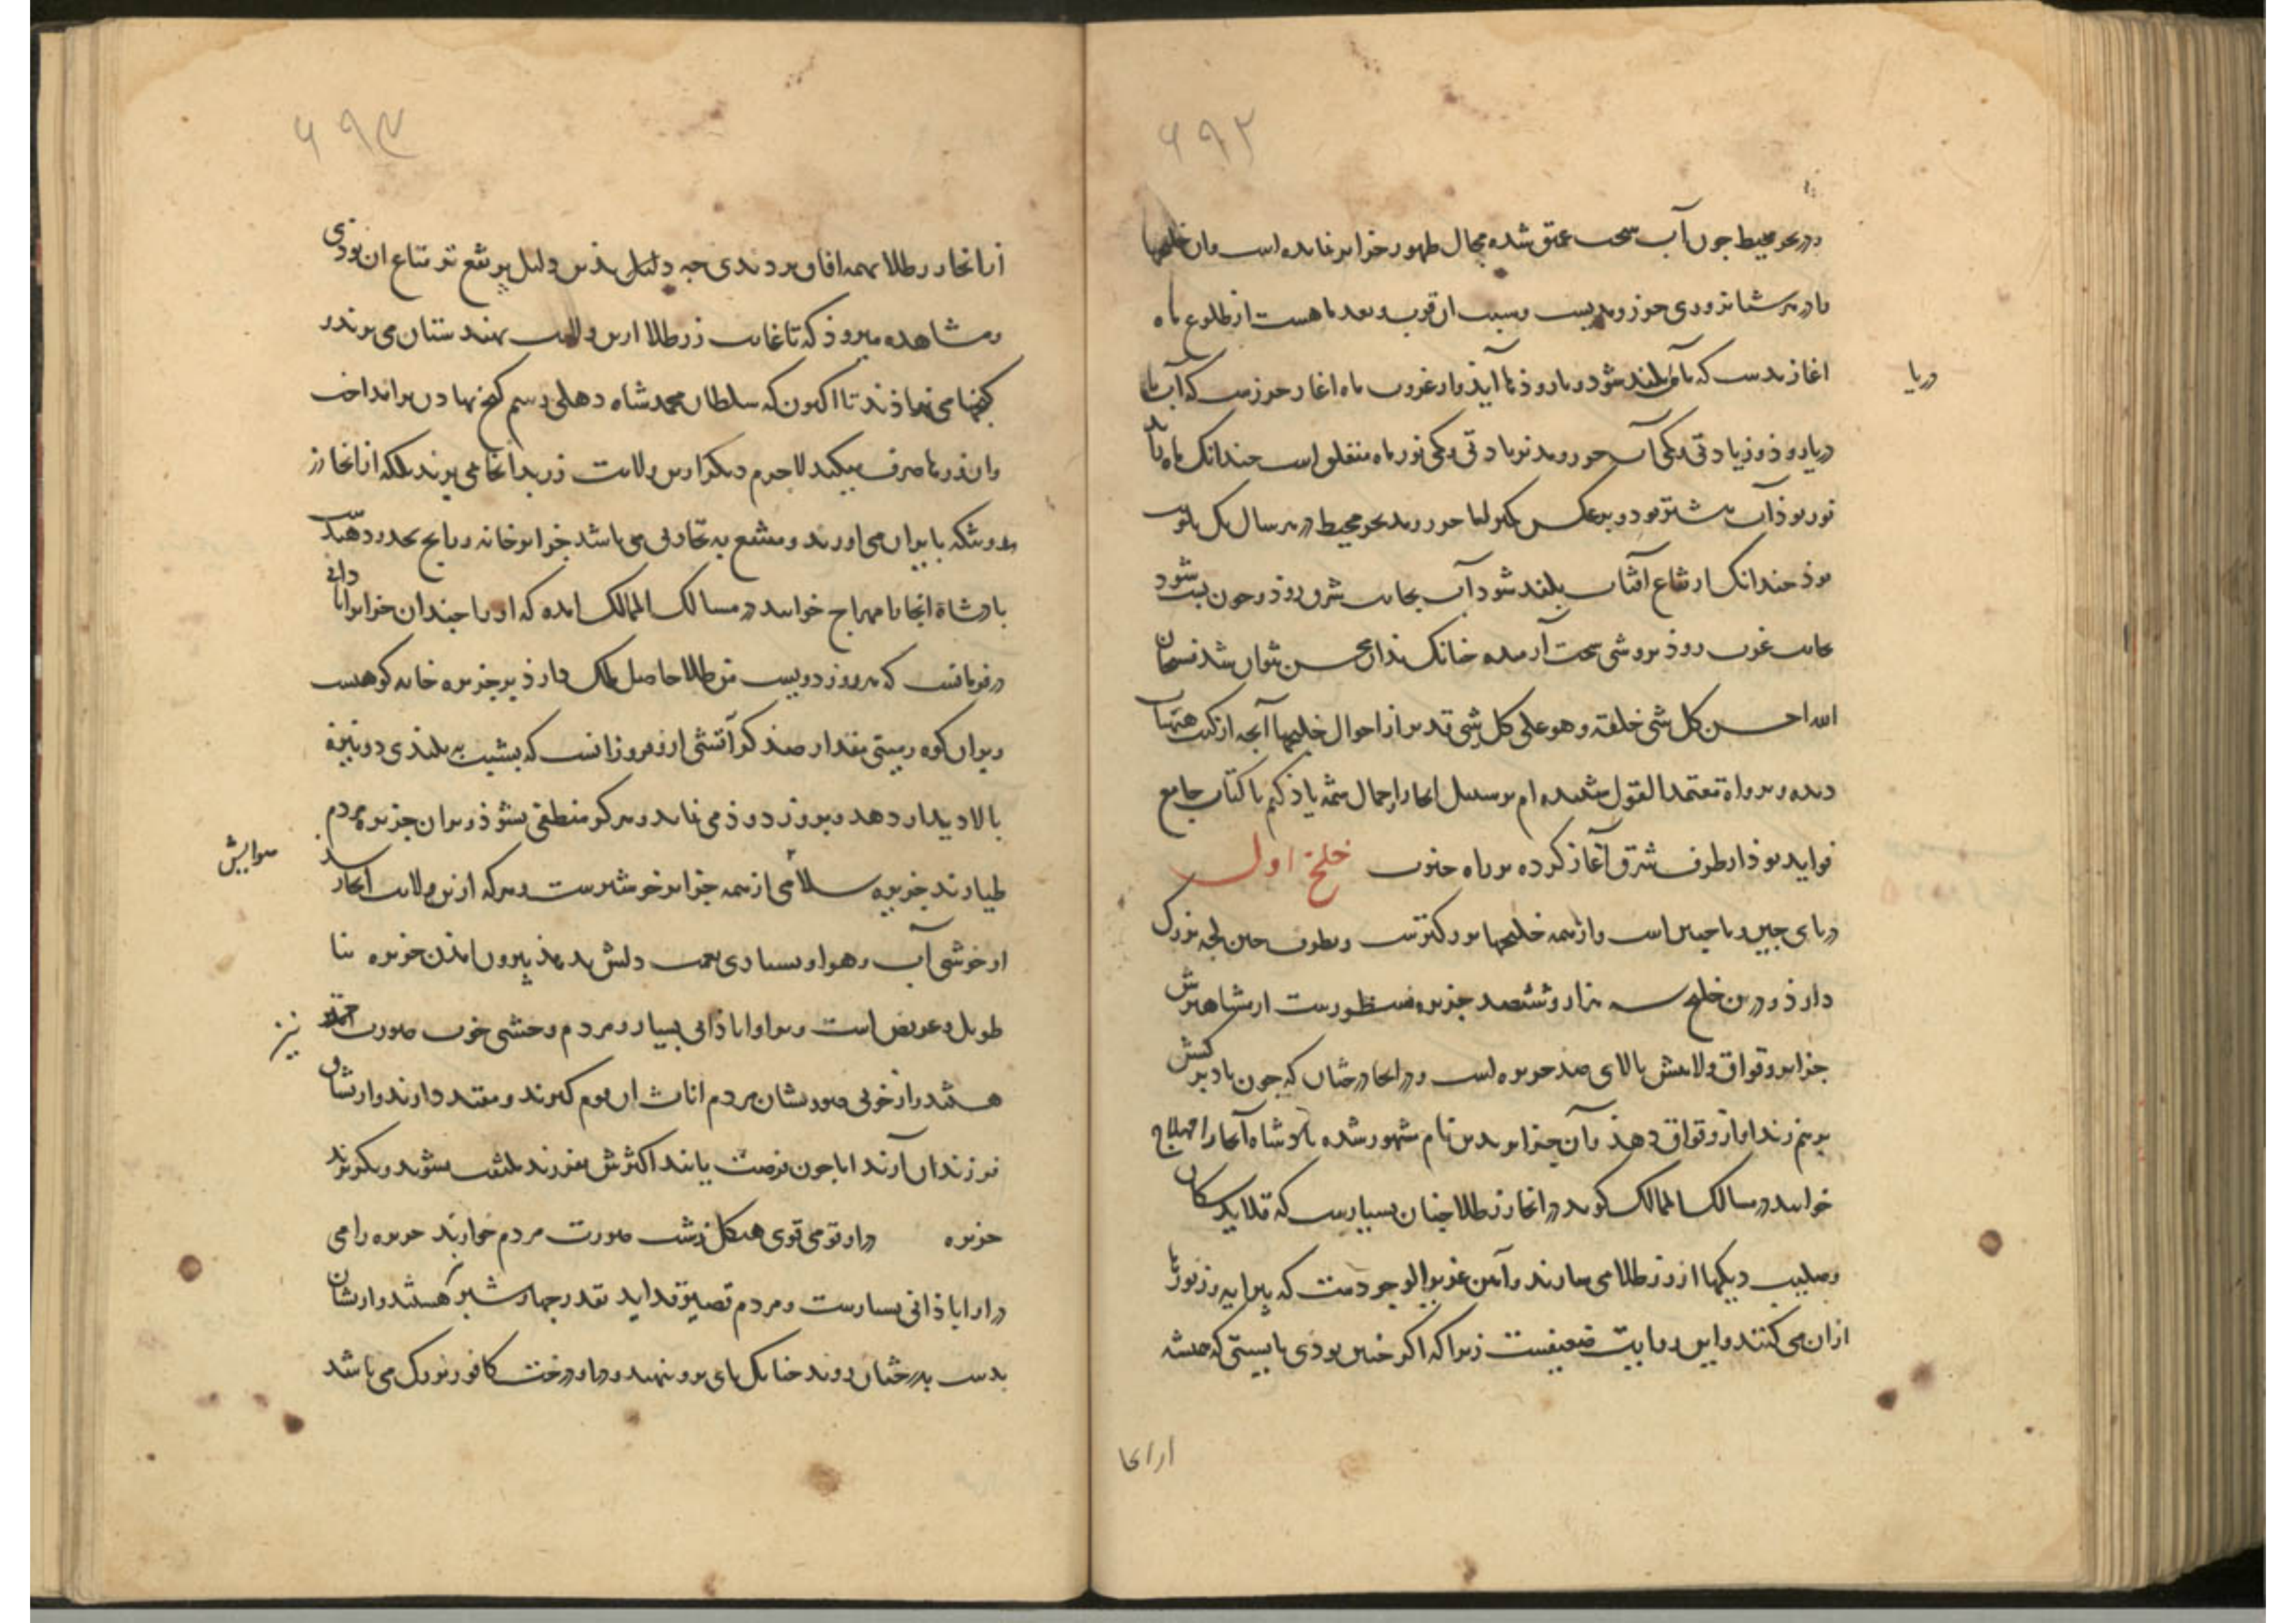 ۶۹۲
در بحر محیط چون آب سخت عمیق شده مجال ظهور جزایر نمانده است و آن خلیجها
را در هر شبانروزی جزر و مدیست و سبب آن قرب و بعد ماهست از طلوع ماه
آغاز مدست که تا ماه بلند شود دریا رو ذنا آید و از غروب ماه آغاز جزرست که آب با
دریا روذ و زیادتی و کمی آب جزر و مد بزیادتی و کمی نور ماه متعلق است چندانک ماه را
نور بوذ آب بیشتر بود و برعکس کمتر اما جزر و مد بحر محیط در هر سال یک نوبت
بوذ چندانک ارتفاع آفتاب بلند شود آب بجانب شرق روذ و چون پست شود
بجانب غرب روذ بروشی سخت آرمیده چنانک بذان حس نتوان شد فسبحان
الله احسن کل شی خلقه و هو علی کل شی قدیر از احوال خلیجها آنچه از کتب
دیده و بروات معتمد القول شنیده ام بر سبیل ایجاز و اجمال شمه یاذ کنم تا کتاب جامع
فواید بوذ از طرف شرق آغاز کرده بر راه جنوب خلیج اول
دریای چین و ماچین است و از همه خلیجها بزرکترست و بطرف چین لجه بزرک
دارذ و درین خلیج سه هزار و ششصد جزیره منظورست از مشاهیرش
جزایر وقواق ولایتش بالای صد جزیره است و در آنجا درختان که چون باد برکش
برهم زند آواز وقواق دهذ و آن جزایر بدین نام مشهور شده پادشاه آنجا را
خوانند در مسالک الممالک گوید در آنجا زر طلا چنان بسیارست که قلاید سکان
و دیکها از زر طلا می سازند و آهن عزیز الوجودست که پیرایه و زیورها
ازان می کنند و این روایت ضعیفست زیرا که اکر چنین بودی بایستی که همیشه
از آنجا
دریا
۶۹۳
از آنجا زر طلا بهمه آفاق بردندی چه دلیل بذین دلیل متاع آن بودی
و مشاهده میروذ که تا غایت زر طلا ازین ولایت بهندستان می برند و
کنجها می نهاذند تا اکنون که سلطان محمد شاه دهلی رسم کنج نهادن برانداخت
و آن زرها صرف میکند لاجرم دیکر ازین ولایت زر بدانجا می برند بلکه از آنجا زر
بایران می آورند و متمتع به تجارتی می باشد جزایر خانه و رابج بحدود هند
بادشاه آنجا را مهراج خوانند در مسالک الممالک آمده که او را چندان جزایر آبادانی
در فرمانست که هر روز دویست من طلا حاصل ملک دارذ بر جزیره خانه کوهست
و بران کوه زمینی مقدار صذ کز آتشی افروزانست که بشب به بلندی دو نیزه
بالا دیدار دهد و بروز دوذ می نماید و هرکز منطفی نشوذ و بران جزیره مردم
طیارند جزیره سلامی از همه جزایر خوشترست و هرکه ازین ولایت آنجا رسد
از خوشی آب و هوا و بسیاری نعمت دلش ندهذ بیرون آمدن جزیره بنا
طویل و عریض است و برو آباذانی بسیار و مردم وحشی خوب صورت
هستند و از خوبی صورتشان مردم اناث آن بوم کیرند و مقید دارند و ازیشان
فرزندان آرند اما چون فرصت یابند اکثرش بفرزند ملتفت نشوند و بکریزند
جزیره درو قومی قوی هیکل زشت صورت مردم خوارند جزیره رامی
درو آباذانی بسیارست و مردم قصیر قد اید بقدر چهار شبر هستند و ازیشان
بدست بدرختان روند چنانک پای برو ننهند و درو درخت کافور بزرک می باشد
سوایش
نیز